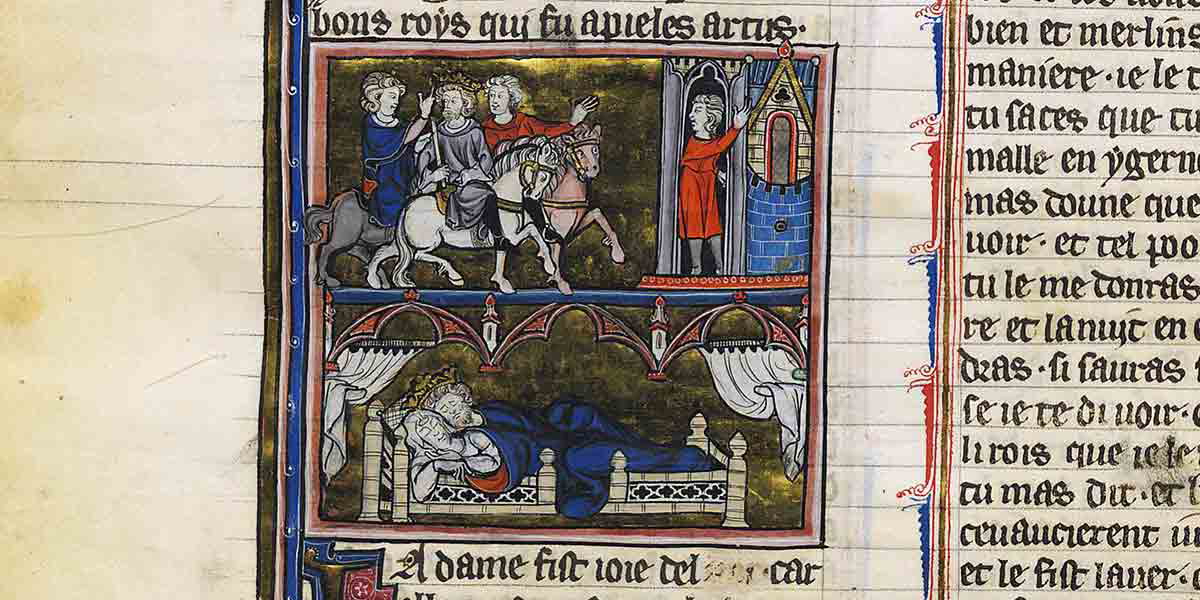 bons roys qui fu apieles artus·
A dame fist ioie del car
bien et merlins
maniere · ie le
tu saces que
malle en ygern
mas doune que
uoir · et tel poo
tu le me donras
re et la nuyt en
dras · si sauras
se ie te di uoir ·
li rois que ie le
tu mas dit · et
ceuaucierent
et le fist lauer ·